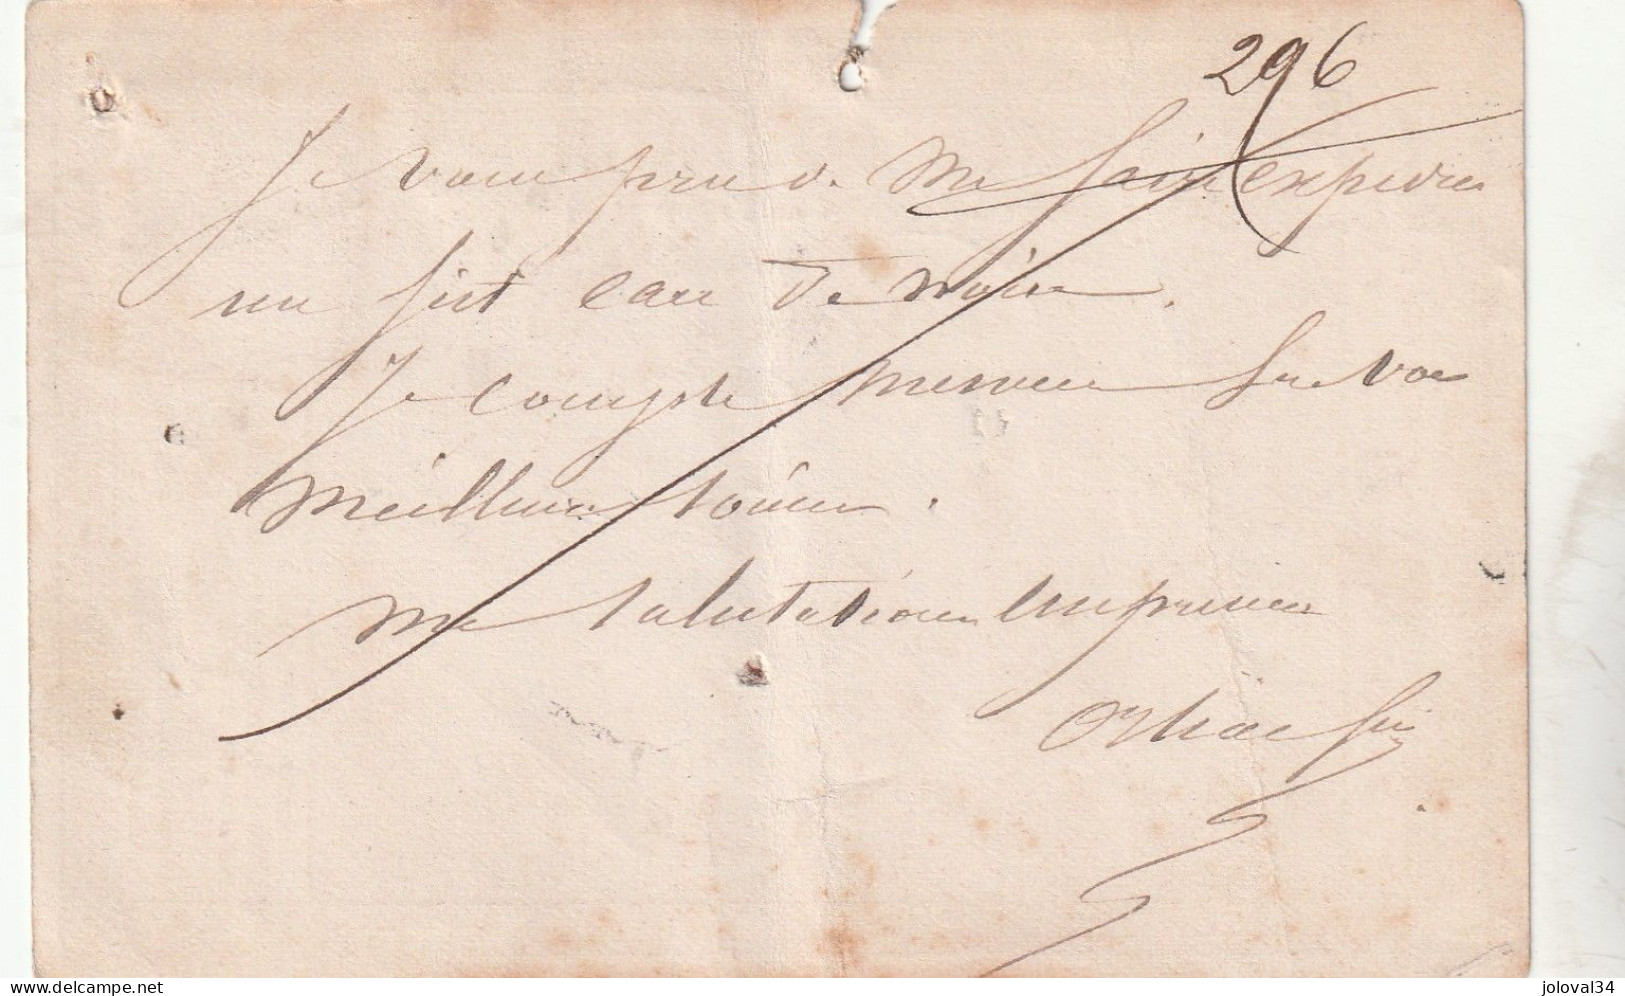 296
Je vous prie de me faire expedier
un fût eau de noix.
Je compte Messieurs sur vos
meilleurs soins.
Mes salutations empressées
delcampe.net
joloval34